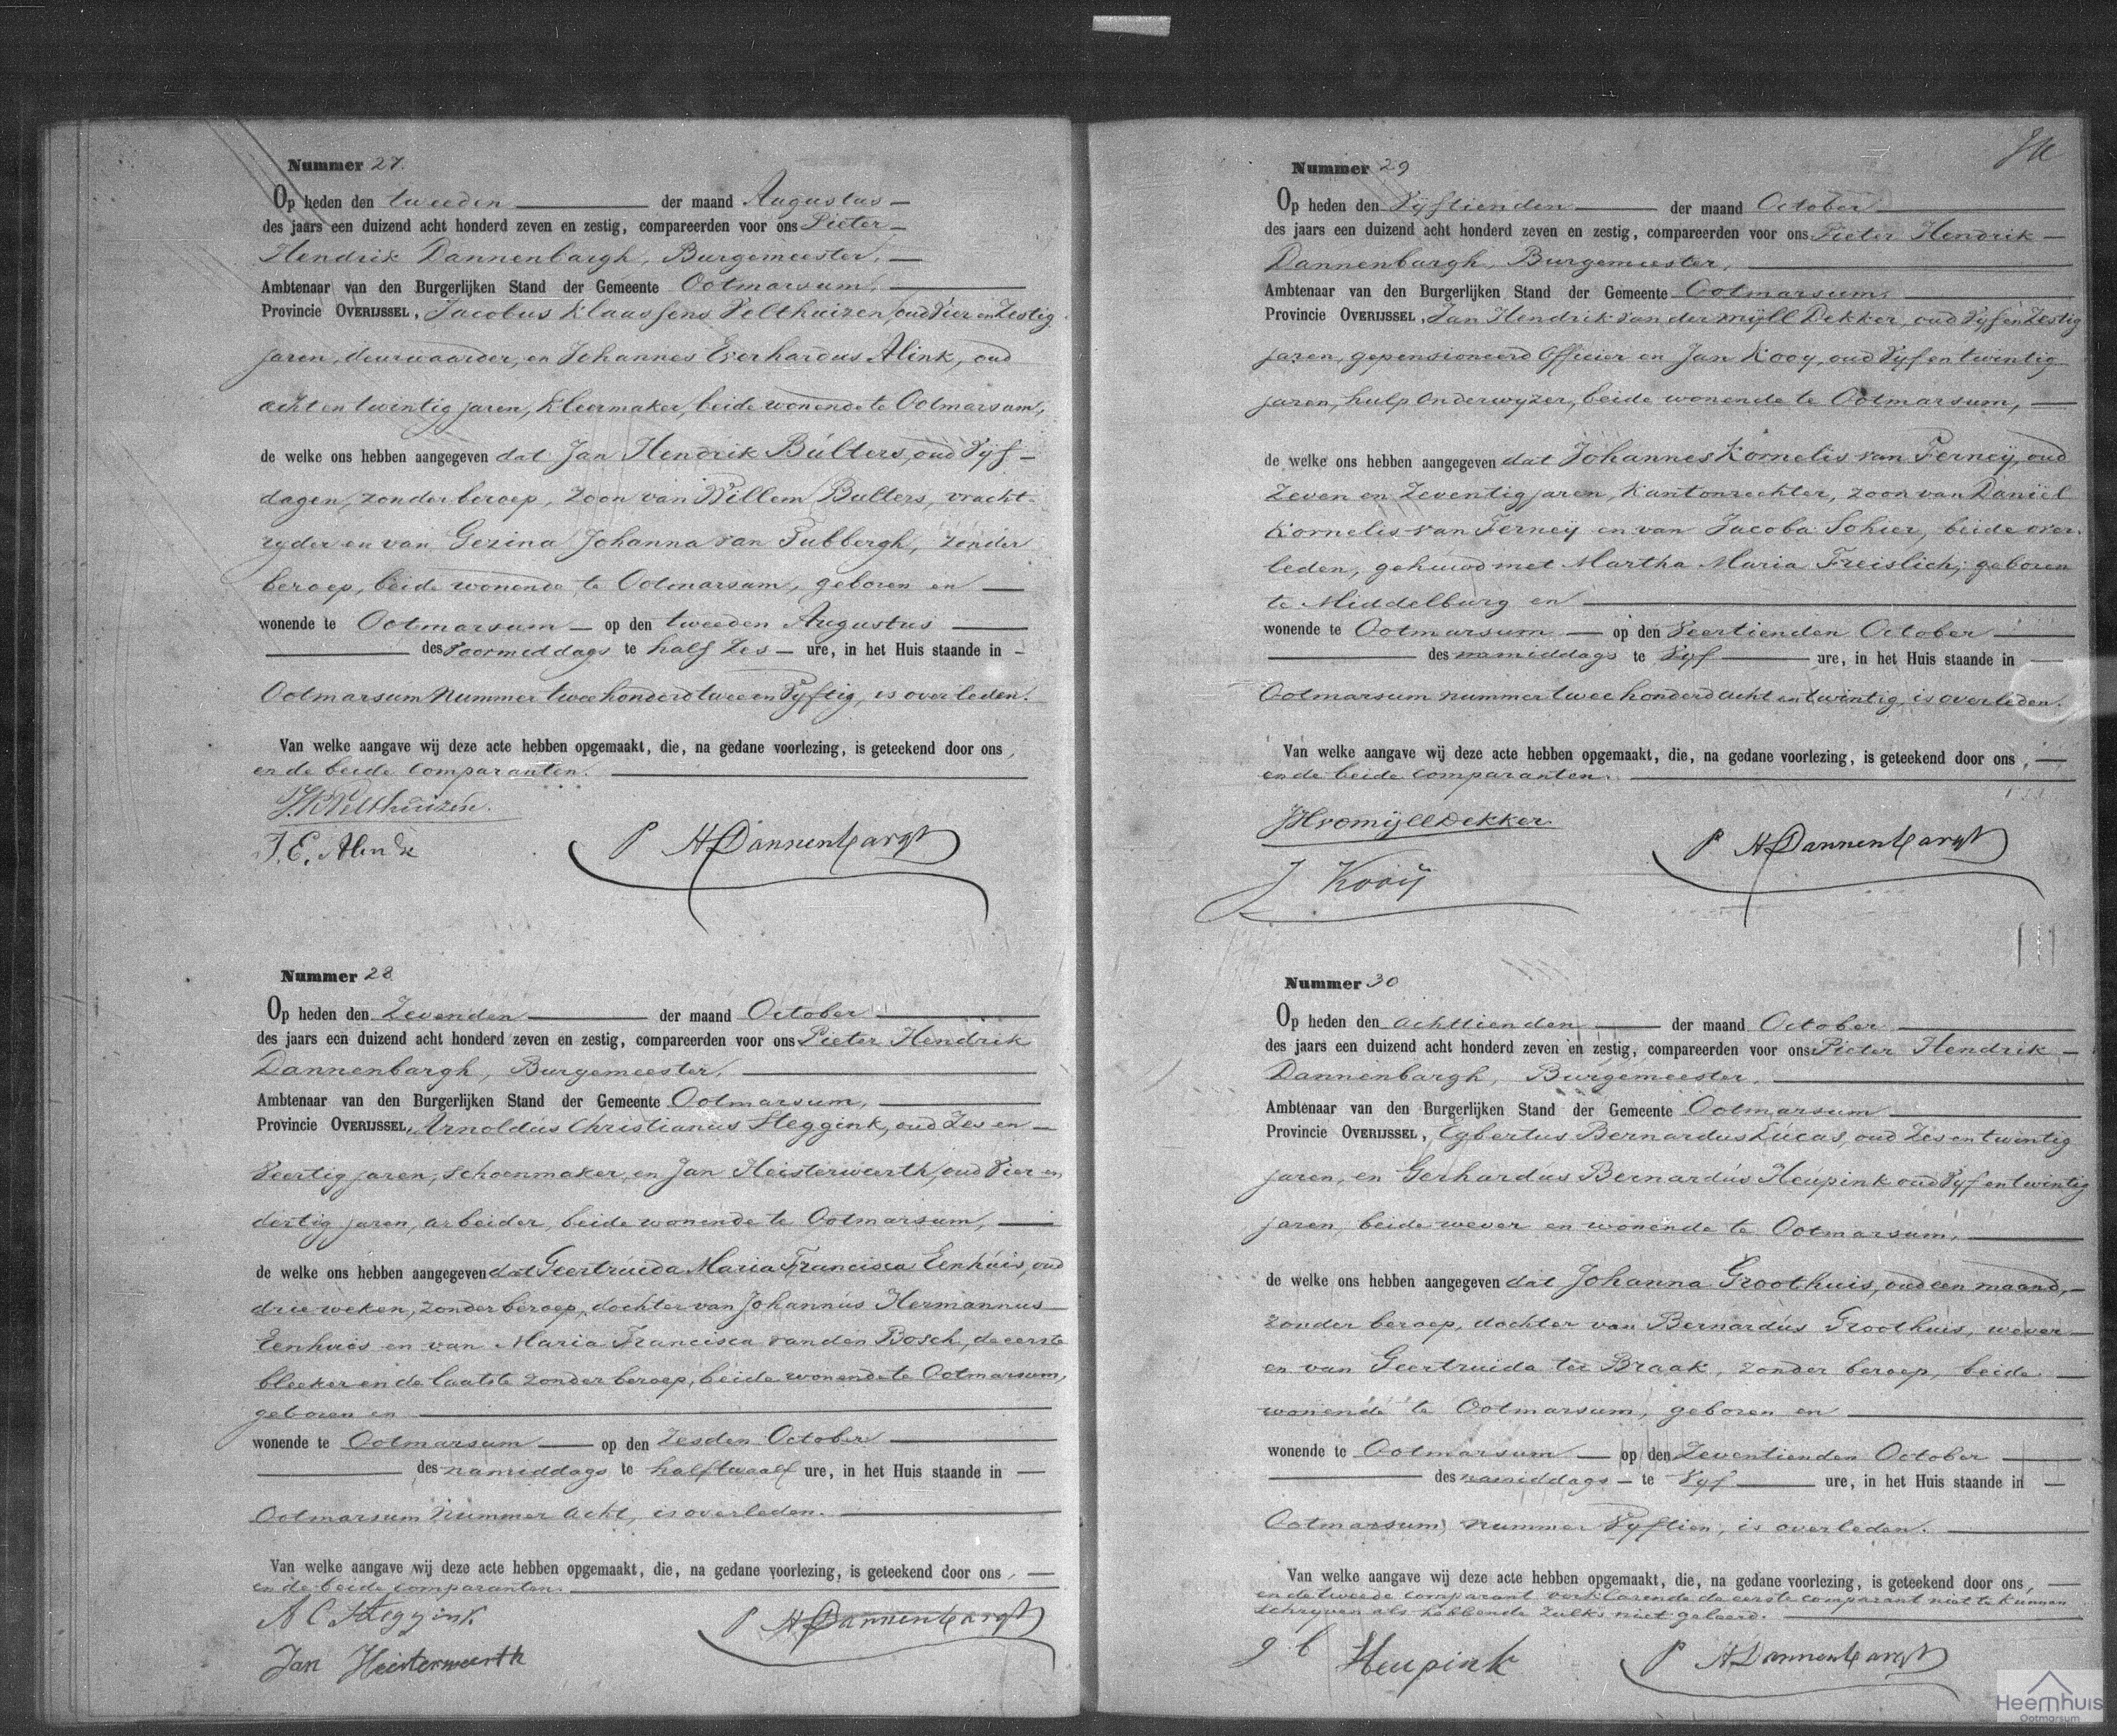 Nummer 27.
Op heden den tweeden der maand Augustus
des jaars een duizend acht honderd zeven en zestig, compareerden voor ons Pieter
Hendrik Dannenbargh, Burgemeester,
Ambtenaar van den Burgerlijken Stand der Gemeente Ootmarsum,
Provincie OVERIJSSEL, Jacobus Klaassens Velthuizen, oud Vier en Zestig
jaren, deurwaarder, en Johannes Everhardus Alink, oud
acht en twintig jaren, Kleermaker, beide wonende te Ootmarsum,
de welke ons hebben aangegeven dat Jan Hendrik Bulters, oud Vyf
dagen, zonder beroep, zoon van Willem Bulters, vracht
ryder en van Gezina Johanna van Tubbergh, zonder
beroep, beide wonende te Ootmarsum, geboren en
wonende te Ootmarsum op den tweeden Augustus
des Voormiddags te half Zes ure, in het Huis staande in
Ootmarsum Nummer twee honderd twee en Vyftig, is overleden.
Van welke aangave wij deze acte hebben opgemaakt, die, na gedane voorlezing, is geteekend door ons,
en de beide comparanten.
J.K. Velthuizen.
J. E. Alink
P H Dannenbargh
Nummer 28
Op heden den Zevenden der maand October
des jaars een duizend acht honderd zeven en zestig, compareerden voor ons Pieter Hendrik
Dannenbargh, Burgemeester,
Ambtenaar van den Burgerlijken Stand der Gemeente Ootmarsum,
Provincie OVERIJSSEL, Arnoldus Christianus Steggink, oud Zes en
Veertig jaren, schoenmaker, en Jan Heisterweerth, oud Vier en
dertig jaren, arbeider, beide wonende te Ootmarsum,
de welke ons hebben aangegeven dat Geertruida Maria Francisca Eenhuis, oud
drie weken, zonder beroep, dochter van Johannus Hermannus
Eenhuis en van Maria Francisca van den Bosch, de eerste
bleeker en de laatste zonder beroep, beide wonende te Ootmarsum,
geboren en
wonende te Ootmarsum op den Zesden October
des namiddags te half twaalf ure, in het Huis staande in
Ootmarsum Nummer acht, is overleden.
Van welke aangave wij deze acte hebben opgemaakt, die, na gedane voorlezing, is geteekend door ons,
en de beide comparanten.
A C Steggink
Jan Heisterweerth
P H Dannenbargh
Nummer 29
Op heden den Vyftienden der maand October
des jaars een duizend acht honderd zeven en zestig, compareerden voor ons Pieter Hendrik
Dannenbargh, Burgemeester,
Ambtenaar van den Burgerlijken Stand der Gemeente Ootmarsum,
Provincie OVERIJSSEL, Jan Hendrik van der Myll Dekker, oud Vyf en Zestig
jaren, gepensioneerd Officier en Jan Kooy, oud Vyf en twintig
jaren, hulp Onderwyzer, beide wonende te Ootmarsum,
de welke ons hebben aangegeven dat Johannes Kornelis van Ferneij, oud
Zeven en Zeventig jaren, Kantonrechter, zoon van Daniël
Kornelis van Ferneij en van Jacoba Sohier, beide over
leden, gehuwd met Martha Maria Freislich, geboren
te Middelburg en
wonende te Ootmarsum op den Veertienden October
des namiddags te Vyf ure, in het Huis staande in
Ootmarsum nummer twee honderd acht en twintig, is overleden.
Van welke aangave wij deze acte hebben opgemaakt, die, na gedane voorlezing, is geteekend door ons,
en de beide comparanten.
JHvdmijllDekker
J Kooij
P H Dannenbargh
Nummer 30
Op heden den achttienden der maand October
des jaars een duizend acht honderd zeven en zestig, compareerden voor ons Pieter Hendrik
Dannenbargh, Burgemeester,
Ambtenaar van den Burgerlijken Stand der Gemeente Ootmarsum
Provincie OVERIJSSEL, Egbertus Bernardus Lucas, oud Zes en twintig
jaren, en Gerhardus Bernardus Heupink oud Vyf en twintig
jaren, beide wever en wonende te Ootmarsum,
de welke ons hebben aangegeven dat Johanna Groothuis, oud een maand,
zonder beroep, dochter van Bernardus Groothuis, wever
en van Geertruida ter Braak, zonder beroep, beide
wonende te Ootmarsum, geboren en
wonende te Ootmarsum op den Zeventienden October
des namiddags te Vyf ure, in het Huis staande in
Ootmarsum, nummer Vyftien, is overleden.
Van welke aangave wij deze acte hebben opgemaakt, die, na gedane voorlezing, is geteekend door ons,
en de tweede comparant verklarende de eerste comparant niet te kunnen
schryven als hebbende zulks niet geleerd.
g b Heupink
P H Dannenbargh
Heemhuis
Ootmarsum